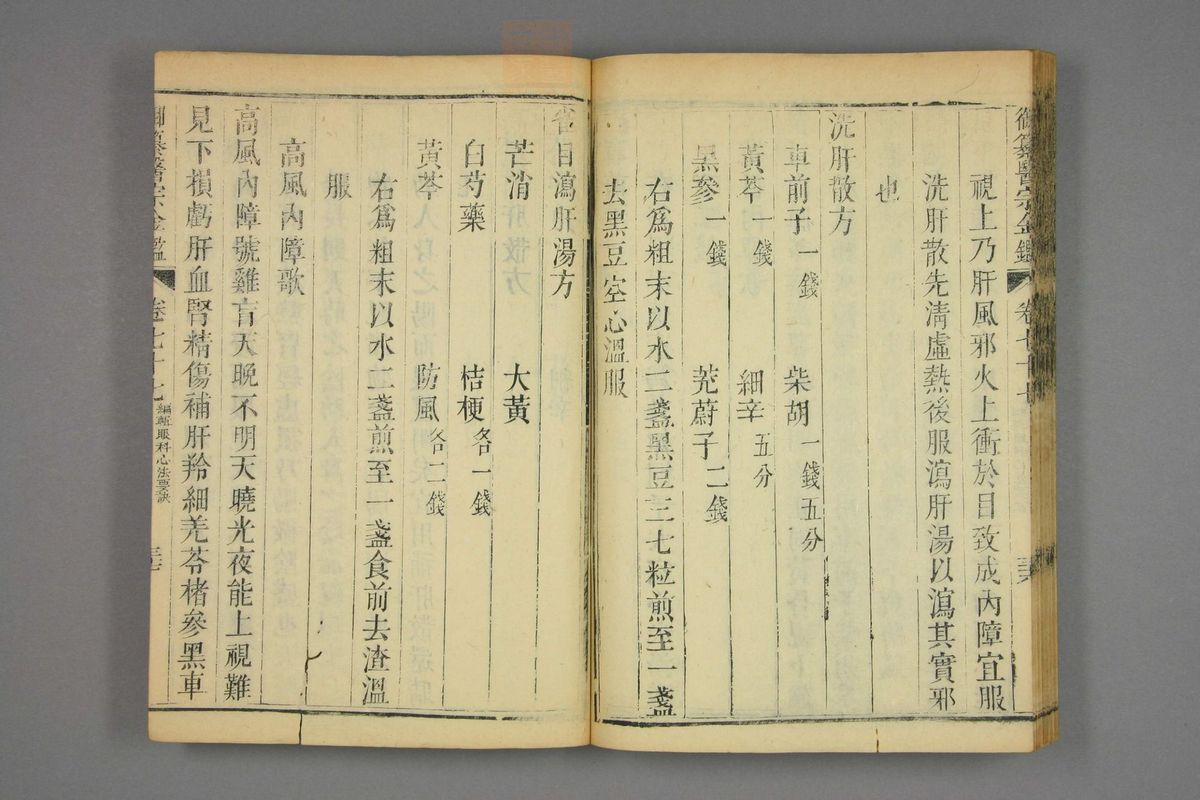 御纂醫宗金鑑 卷七十七
視上乃肝風邪火上衝於目致成內障宜服
洗肝散先淸虛熱後服瀉肝湯以瀉其實邪
也
洗肝散方
車前子一錢 柴胡一錢五分
黃芩一錢 細辛五分
黑參一錢 茺蔚子二錢
右爲粗末以水二盞黑豆三七粒煎至一盞
去黑豆空心溫服
省目瀉肝湯方
芒消 大黃
白芍藥 桔梗各一錢
黃芩 防風各二錢
右爲粗末以水二盞煎至一盞食前去渣溫
服
高風內障歌
高風內障號雞盲天晚不明天曉光夜能上視難
見下損虧肝血腎精傷補肝羚細羌苓楮參黑車
御纂醫宗金鑑 卷七十七 編輯眼科心法要訣